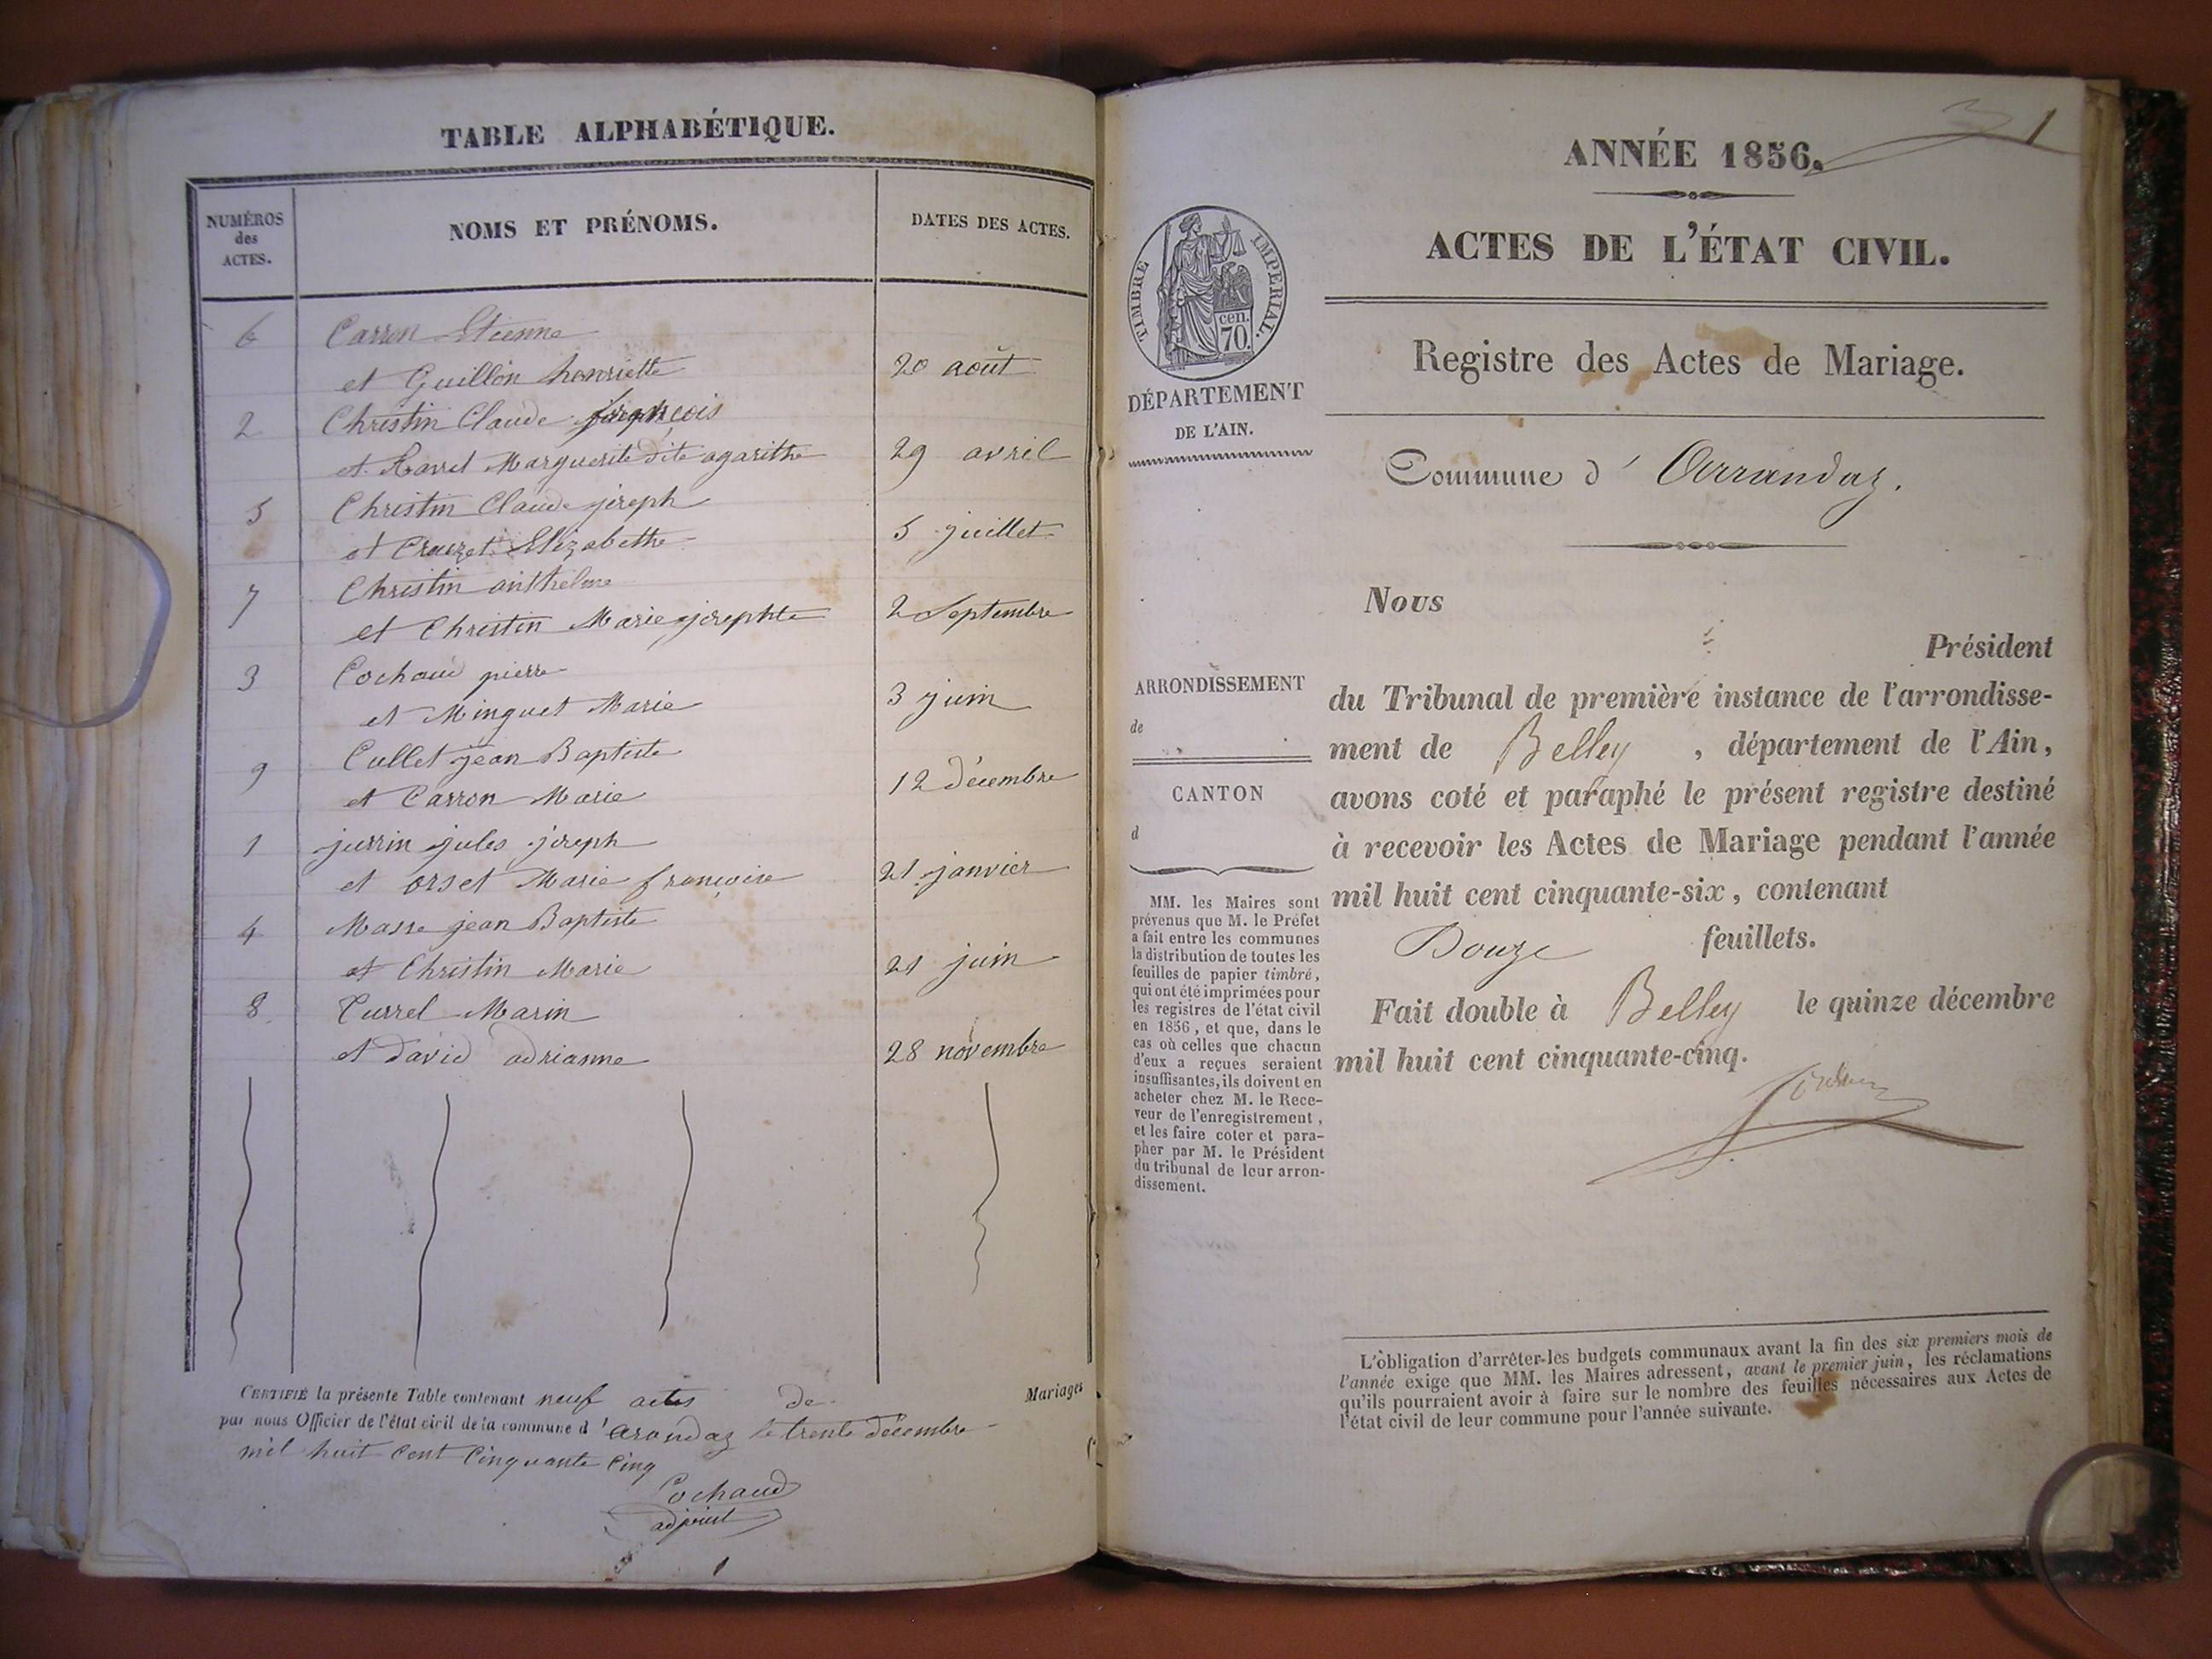 TABLE ALPHABÉTIQUE.
NUMÉROS des ACTES.
NOMS ET PRÉNOMS.
DATES DES ACTES.
6 Carron Etienne
et Guillon henriette 20 août
2 Christin Claude françois
et Ravel Marguerite dite agarithe 29 avril
5 Christin Claude joseph
et Crouzet Elizabethe 5 juillet
7 Christin anthelme
et Christin Marie josephte 2 Septembre
3 Cochaud pierre
et Minguet Marie 3 juin
9 Cullet jean Baptiste
et Carron Marie 12 décembre
1 jurrin jules joseph
et orset Marie françoise 21 janvier
4 Masse jean Baptiste
et Christin Marie 21 juin
8 Currel Marin
et david adrianne 28 novembre
CERTIFIÉ la présente Table contenant neuf actes de Mariages
par nous Officier de l'état civil de la commune d'arandaz le trente décembre
mil huit cent cinquante cinq
Cochaud
adjoint
1
ANNÉE 1856.
ACTES DE L'ÉTAT CIVIL.
TIMBRE IMPÉRIAL.
cen.
70.
DÉPARTEMENT
DE L'AIN.
Registre des Actes de Mariage.
Commune d' Arrandaz.
Nous
Président
ARRONDISSEMENT
de
CANTON
d
du Tribunal de première instance de l'arrondisse-
ment de Belley, département de l'Ain,
avons coté et paraphé le présent registre destiné
à recevoir les Actes de Mariage pendant l'année
mil huit cent cinquante-six, contenant
Douze feuillets.
Fait double à Belley le quinze décembre
mil huit cent cinquante-cinq.
MM. les Maires sont
prévenus que M. le Préfet
a fait entre les communes
la distribution de toutes les
feuilles de papier timbré,
qui ont été imprimées pour
les registres de l'état civil
en 1856, et que, dans le
cas où celles que chacun
d'eux a reçues seraient
insuffisantes, ils doivent en
acheter chez M. le Rece-
veur de l'enregistrement,
et les faire coter et para-
pher par M. le Président
du tribunal de leur arron-
dissement.
L'obligation d'arrêter les budgets communaux avant la fin des six premiers mois de
l'année exige que MM. les Maires adressent, avant le premier juin, les réclamations
qu'ils pourraient avoir à faire sur le nombre des feuilles nécessaires aux Actes de
l'état civil de leur commune pour l'année suivante.